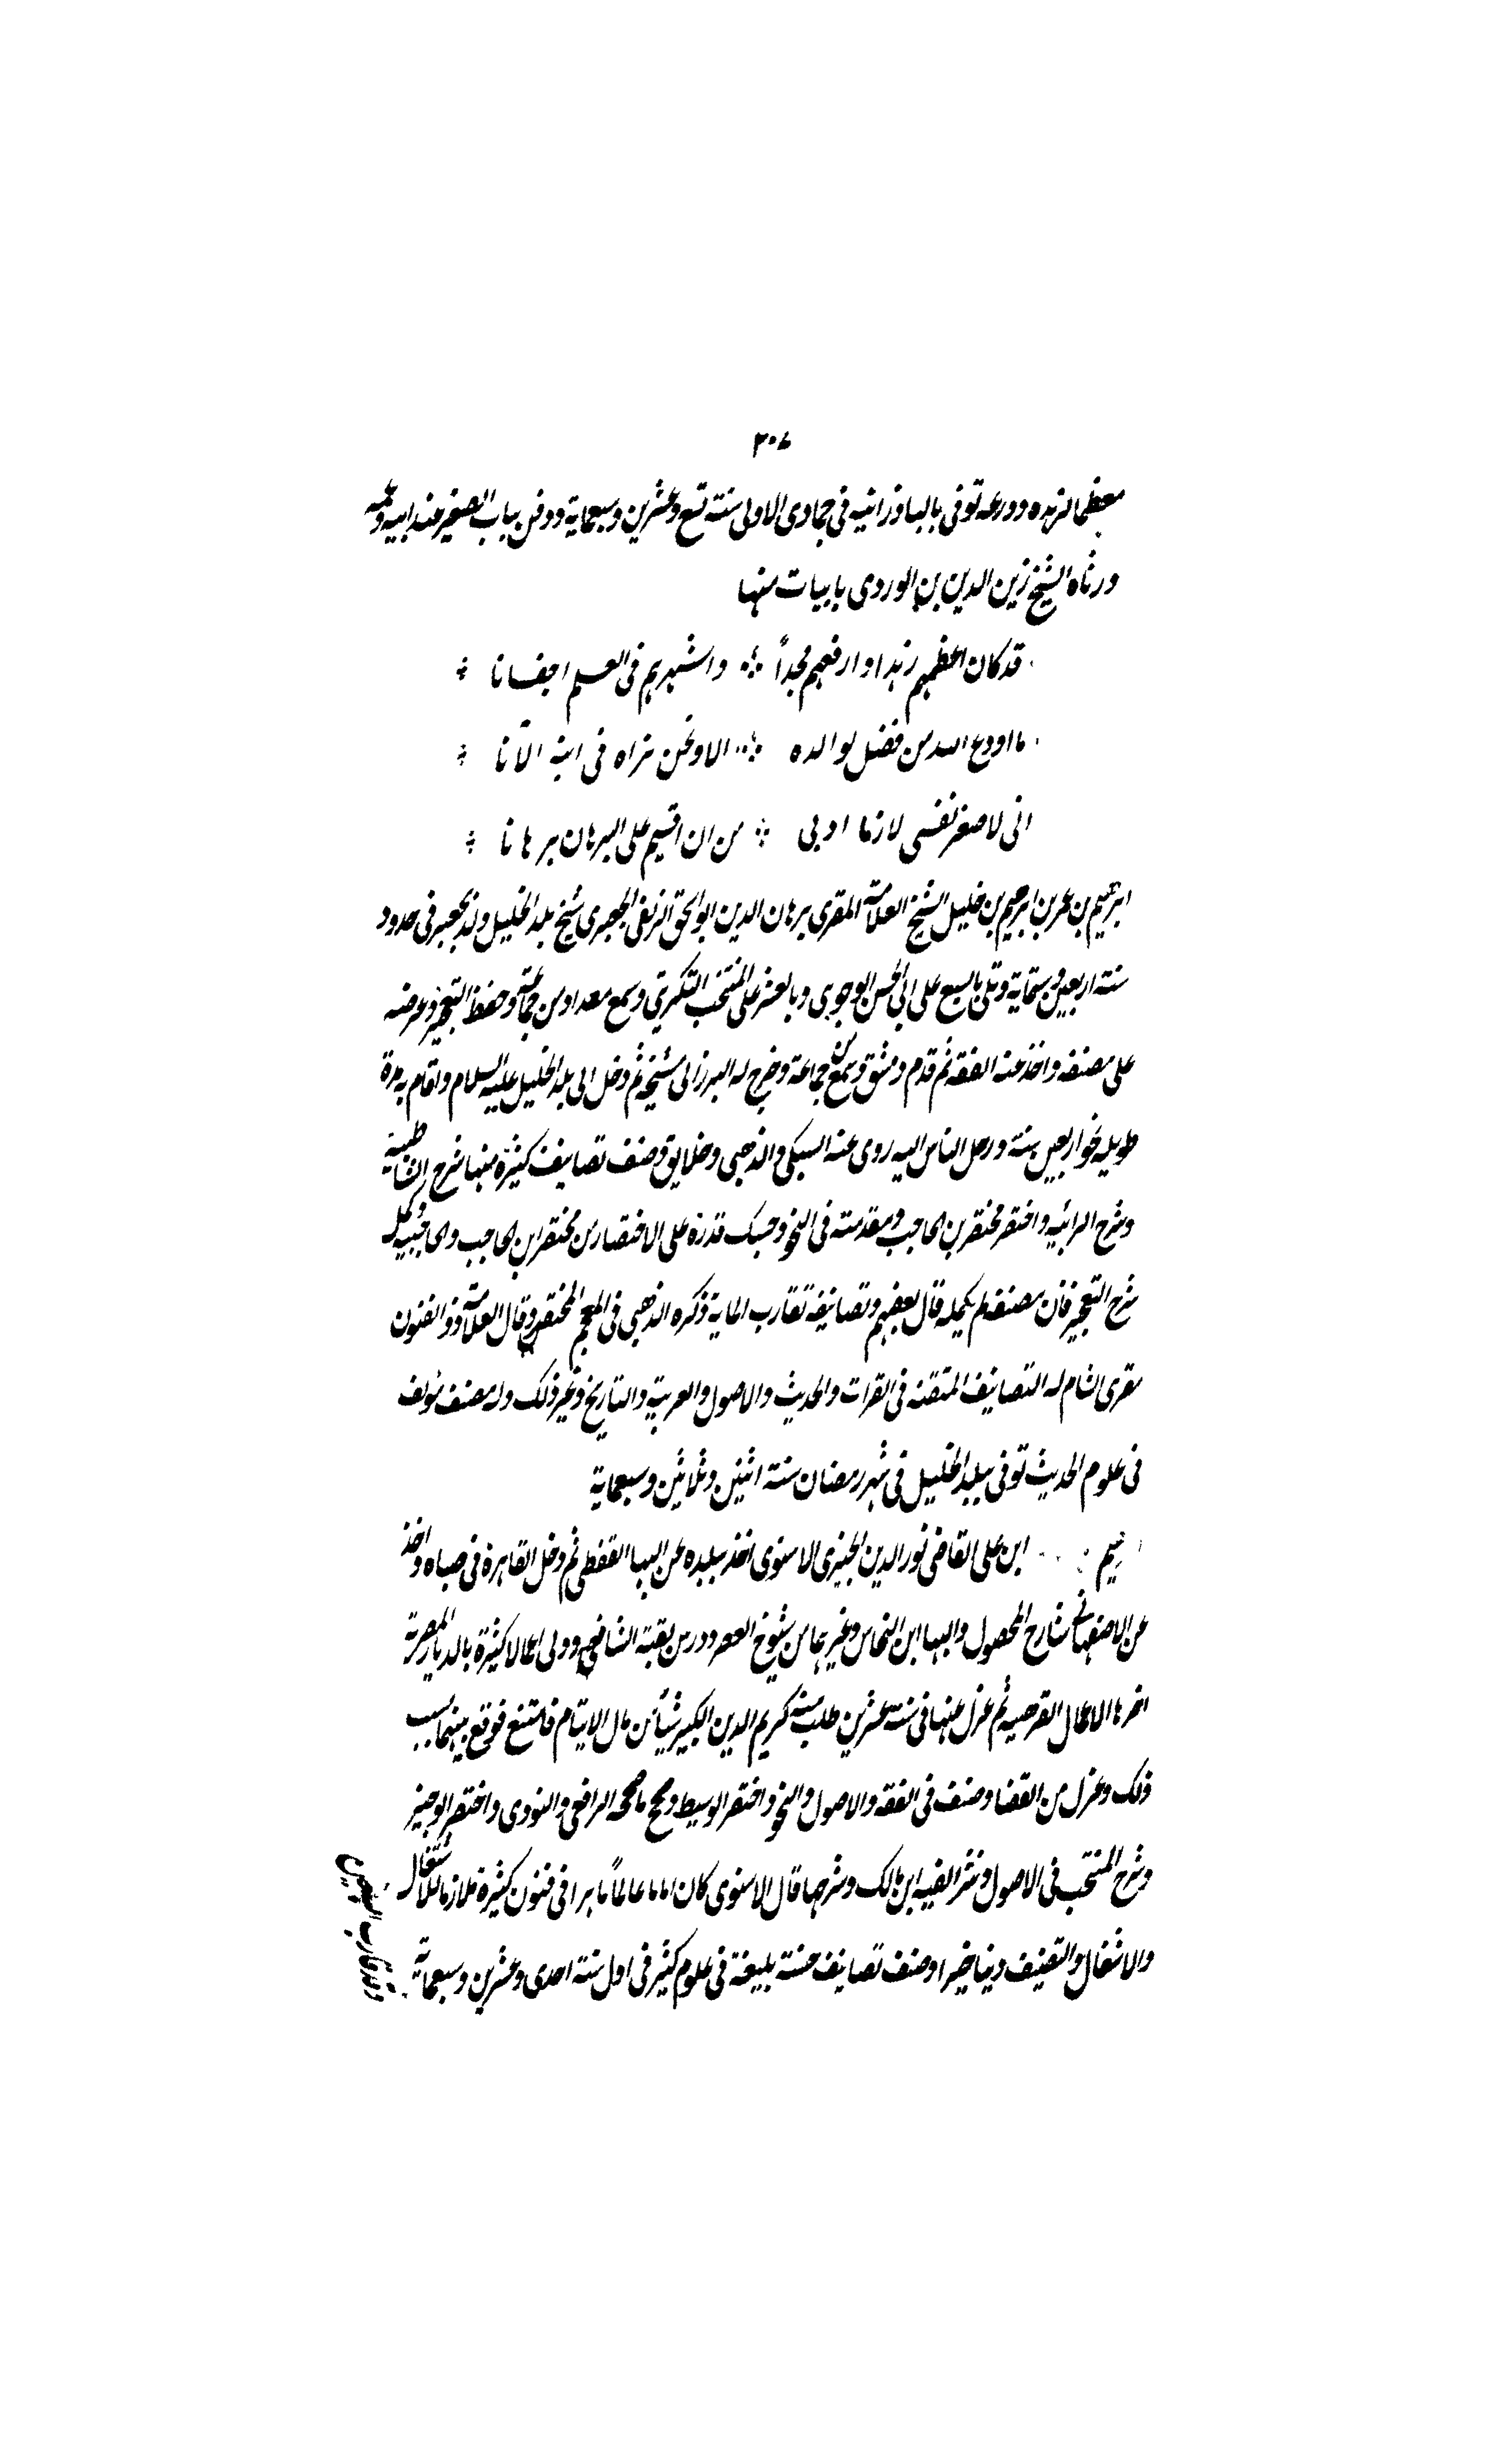 ٣٠٧
معظما لزهده وورعه توفى بالباذرائيه فى جمادى الاولى سنة تسع وعشرين وسبعماية ودفن بباب الصغير عند ابيه وعمه
ورثاه الشيخ زين الدين بن الوردى بابيات منها
قد كان اعظمهم زهدا وارفعهم مجداً ؞ واشهرهم فى العلم اجفانا ؞
ما اودع الله من فضل لوالده ؞ الا ونحن نراه فى ابنه الآنا ؞
انى لاصغر نفسى لازما ادبى ؞ من ان اقيم على البرهان برهانا ؞
ابرهيم بن عمر بن ابرهيم بن خليل الشيخ العلامة المقرى برهان الدين ابو اسحق الربعى الجعبرى شيخ بلد الخليل ولد بجعبر فى حدود
سنة اربعين وستماية وتلى بالسبع على ابى الحسن الوجوهى وبالعشر على المنتخب التكريتى وسمع ببغداد من جماعة وحفظ التعجيز وعرضه
على مصنفه واخذ عنه الفقه ثم قدم دمشق وسمع من جماعة وخرج له البرزالى مشيخة ثم دخل الى بلد الخليل عليه السلام واقام به مدة
طويله نحو اربعين سنة ورحل الناس اليه روى عنه السبكى والذهبى وخلايق وصنف تصانيف كثيرة منها شرح الشاطبية
وشرح الرائيه واختصر مختصر بن الحاجب ومقدمته فى النحو وحسبك قدرة على الاختصار من مختصر ابن الحاجب والحاجبيه وكمل
شرح التعجيز فان مصنفه لم يكمله قال بعضهم وتصانيفه تقارب الماية ذكره الذهبى فى المعجم المختصر وقال العلامة ذو الفنون
مقرى الشام له التصانيف المتقنه فى القرات والحديث والاصول والعربية والتاريخ وغير ذلك وله مصنف مؤلف
فى علوم الحديث توفى ببلد الخليل فى شهر رمضان سنة اثنين وثلاثين وسبعماية
ابن على القاضى نور الدين الحميرى الاسنوى اخذ ببلده عن البها القفطى ثم دخل القاهرة فى صباه واخذ
عن الاصفهانى شارح المحصول والبها ابن النحاس وغيرهما من شيوخ العصر ودرس بقبة الشافعى وولى اعمالا كثيرة بالديار المصرية
اخرها الاعمال القوصيه ثم عزل عنها فى سنة عشرين طلب منه كريم الدين الكبير شيأ من مال الايتام فامتنع فوقع بينهما بسبب
ذلك وعزل من القضا وصنف فى الفقه والاصول والنحو واختصر الوسيط وصحح ما صححه الرافعى والنووى واختصر الوجيز
وشرح المنتخب فى الاصول ونثر الفيه ابن مالك وشرحها قال الاسنوى كان اماما عالماً ماهرا فى فنون كثيرة ملازما للاشتغال
والاشغال والتصنيف دينا خيرا وصنف تصانيف حسنة بليغة فى علوم كثير فى اول سنة احدى وعشرين وسبعماية
وقد قارب السبعين